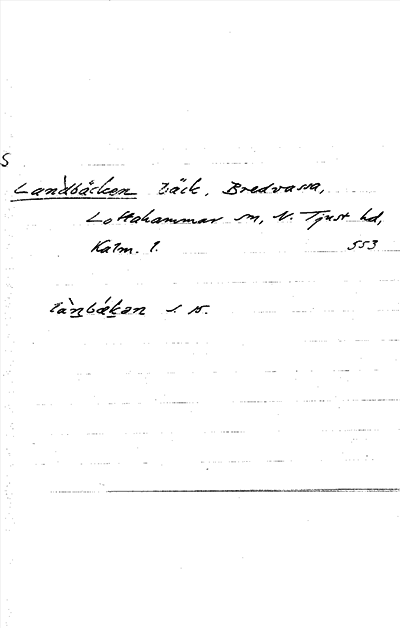 S
Landbäcken bäck, Bredvassa,
Loftahammar sn, N. Tjust hd,
Kalm. l. 553
làn̲bák̲ən